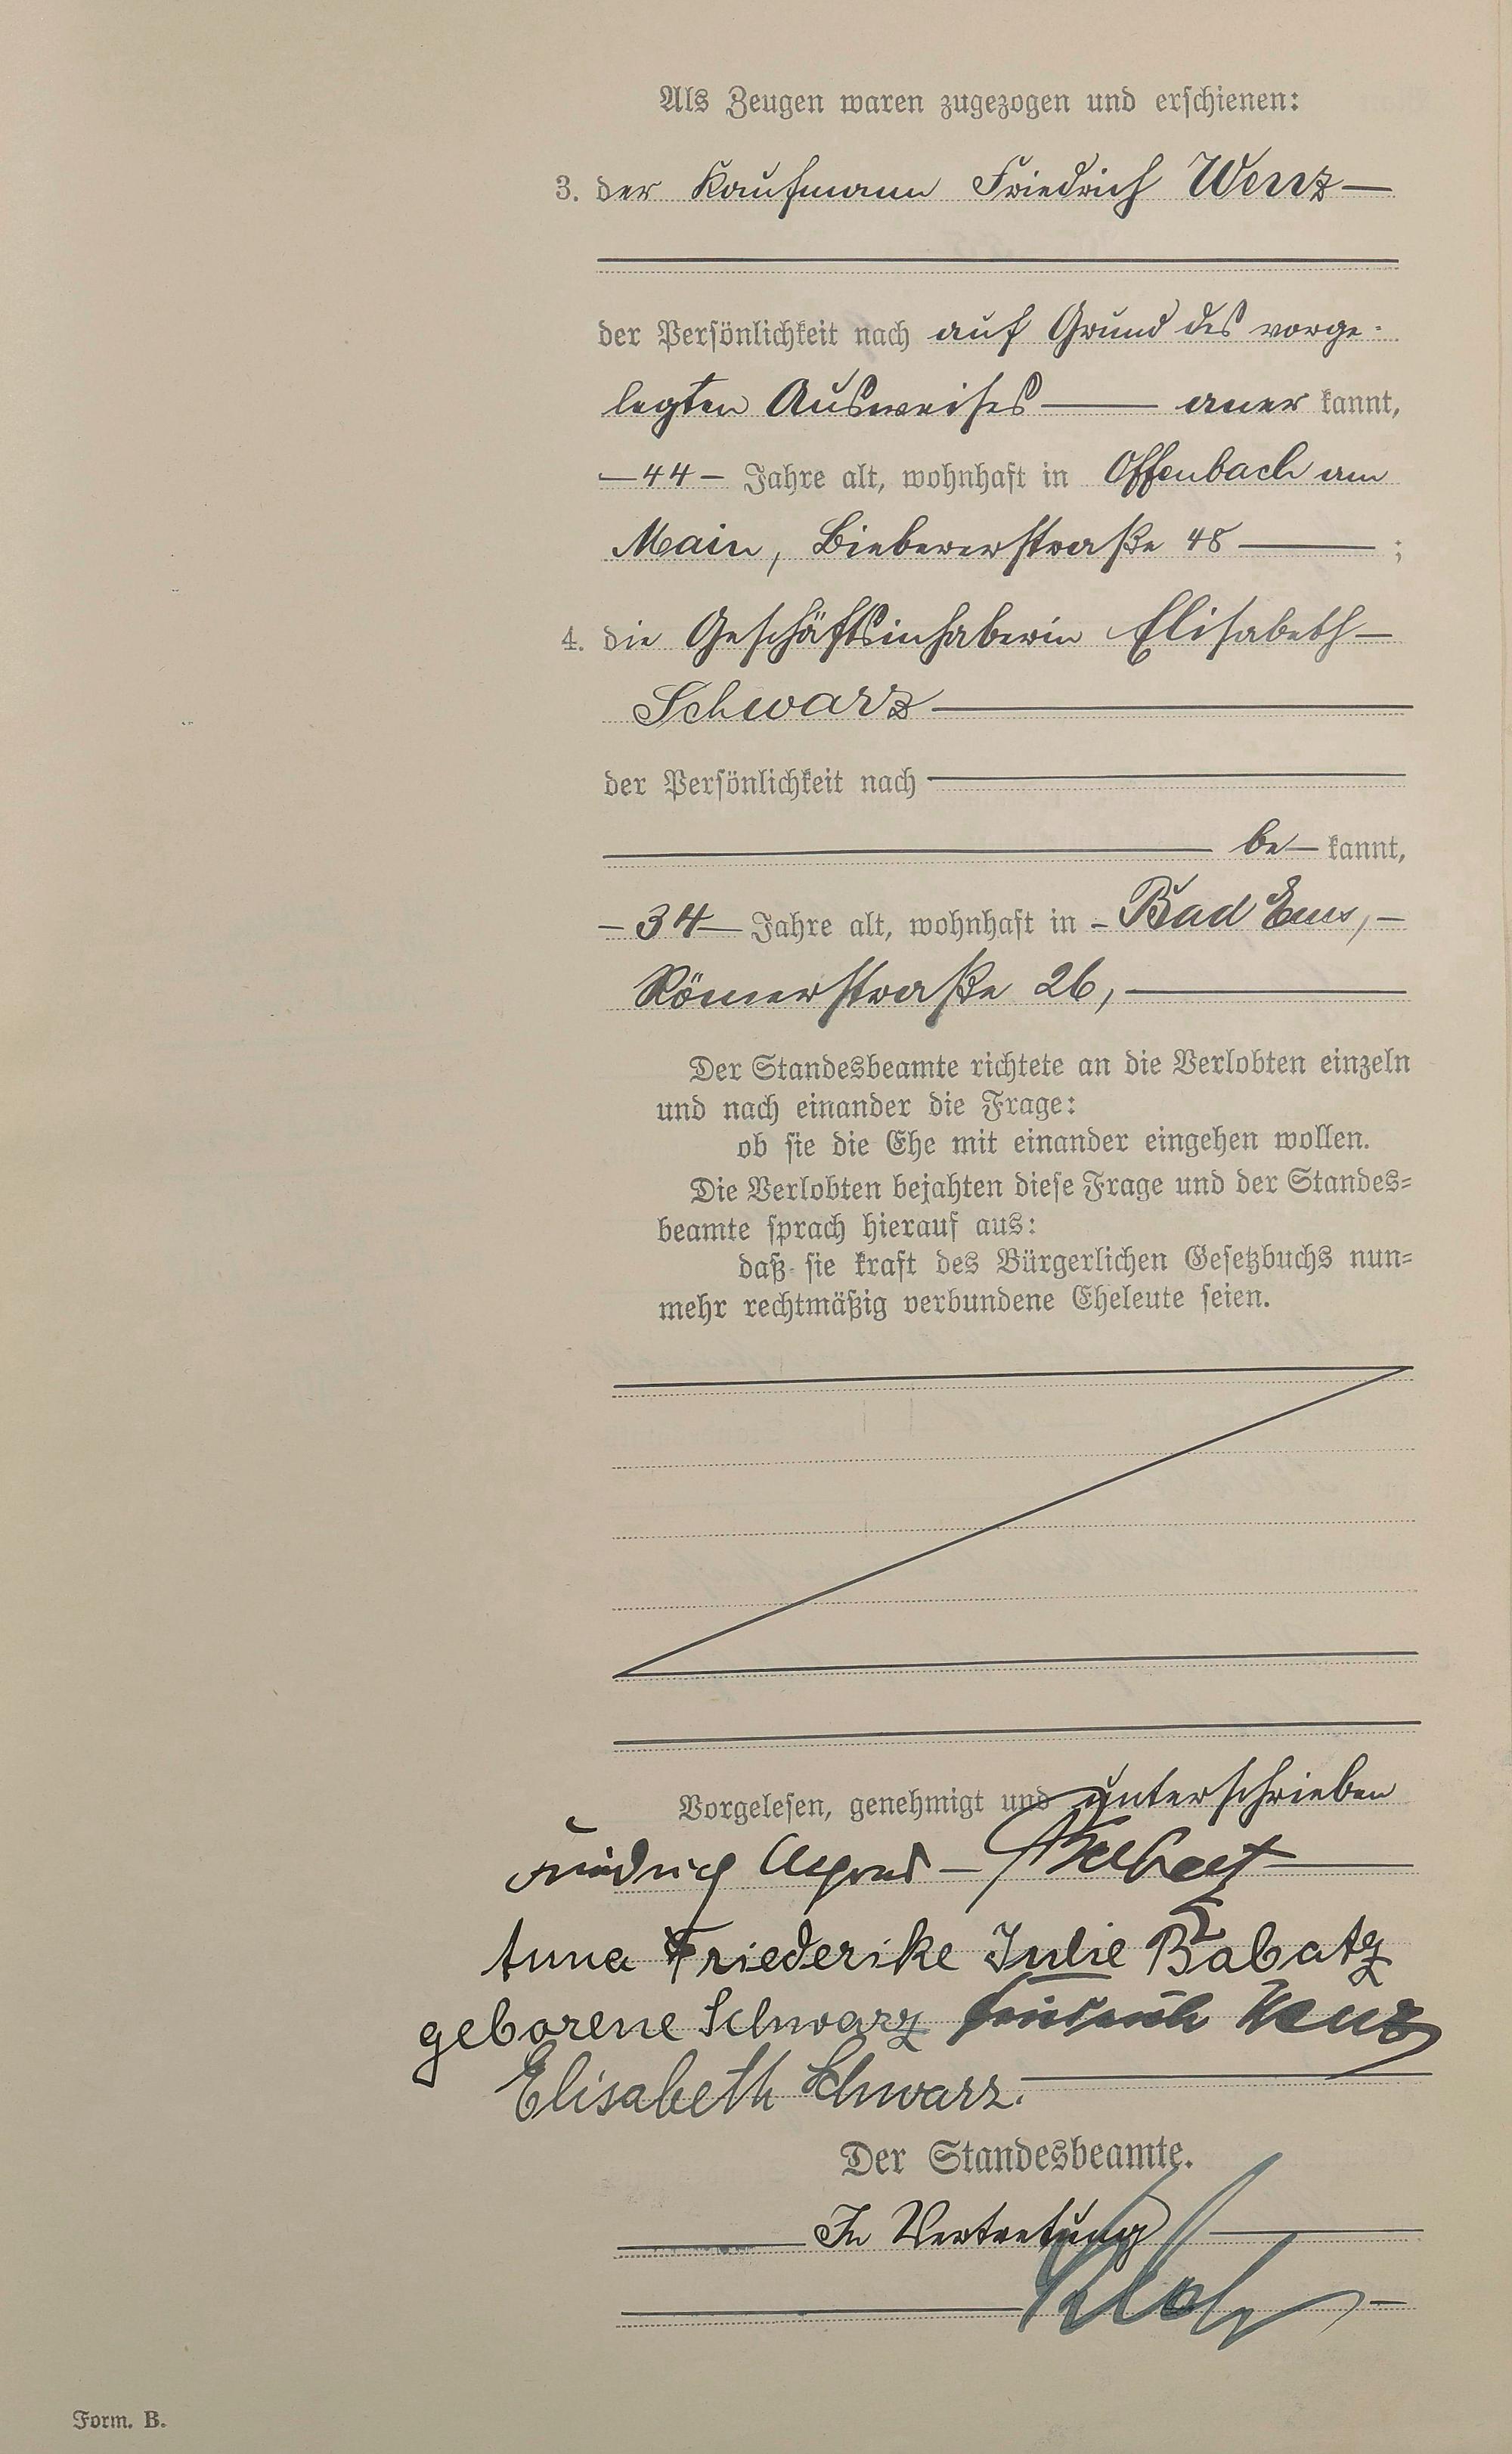 Als Zeugen waren zugezogen und erschienen:
3. der Kaufmann Friedrich Wenz
der Persönlichkeit nach auf Grund des vorge-
legten Ausweises aner kannt,
44 Jahre alt, wohnhaft in Offenbach am
Main, Biebererstraße 48 ;
4. die Geschäftsinhaberin Elisabeth
Schwarz
der Persönlichkeit nach
be kannt,
34 Jahre alt, wohnhaft in Bad Ems,
Römerstraße 26,
Der Standesbeamte richtete an die Verlobten einzeln
und nach einander die Frage:
ob sie die Ehe mit einander eingehen wollen.
Die Verlobten bejahten diese Frage und der Standes=
beamte sprach hierauf aus:
daß sie kraft des Bürgerlichen Gesetzbuchs nun=
mehr rechtmäßig verbundene Eheleute seien.
Vorgelesen, genehmigt und unterschrieben
Friedrich
Anna Friederike Julie Babatz
geborene Schwarz Friedrich Wenz
Elisabeth Schwarz.
Der Standesbeamte.
In Vertretung
Form. B.